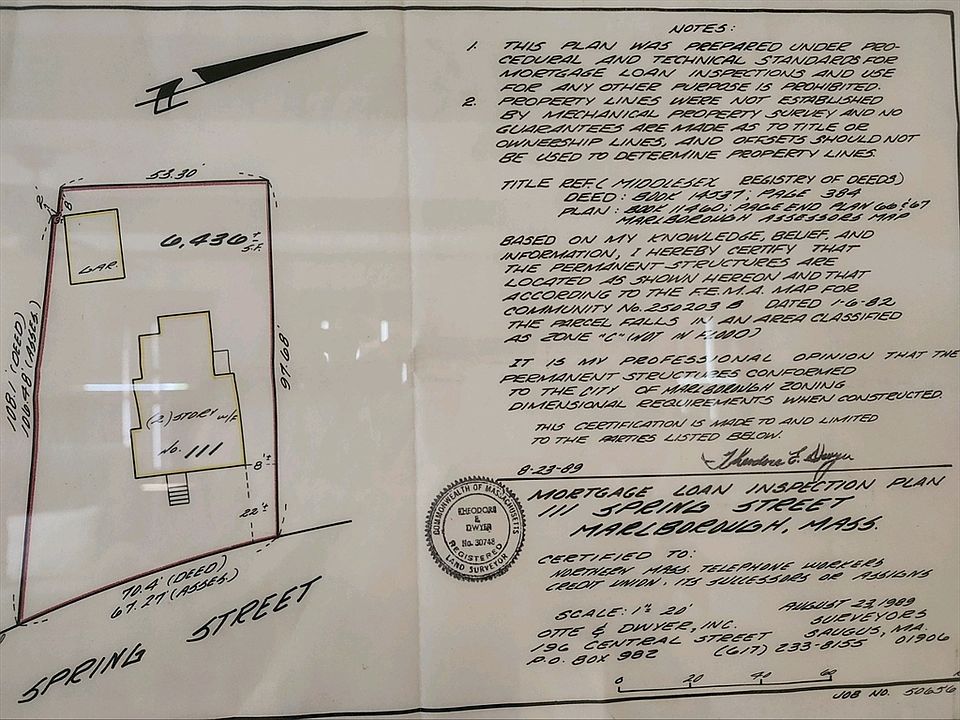 53.30
2'
8'
6,436 ± S.F.
GAR.
108.1 (DEED)
106.48' (ASSES.)
97.68'
(2) STORY w/f
No. 111
8'±
22'±
70.4' (DEED)
67.27' (ASSES.)
SPRING STREET
NOTES:
1. THIS PLAN WAS PREPARED UNDER PRO-
CEDURAL AND TECHNICAL STANDARDS FOR
MORTGAGE LOAN INSPECTIONS AND USE
FOR ANY OTHER PURPOSE IS PROHIBITED.
2. PROPERTY LINES WERE NOT ESTABLISHED
BY MECHANICAL PROPERTY SURVEY AND NO
GUARANTEES ARE MADE AS TO TITLE OR
OWNERSHIP LINES, AND OFFSETS SHOULD NOT
BE USED TO DETERMINE PROPERTY LINES.
TITLE REF. (MIDDLESEX REGISTRY OF DEEDS)
DEED: BOOK 14537: PAGE 384
PLAN: PAGE END PLAN 66 & 67
MARLBOROUGH ASSESSORS MAP
BASED ON MY KNOWLEDGE, BELIEF, AND
INFORMATION, I HEREBY CERTIFY THAT
THE PERMANENT STRUCTURES ARE
LOCATED AS SHOWN HEREON AND THAT
ACCORDING TO THE F.E.M.A. MAP FOR
COMMUNITY No. 250203 B DATED 1-6-82
THE PARCEL FALLS IN AN AREA CLASSIFIED
AS ZONE "C" (NOT IN FLOOD)
IT IS MY PROFESSIONAL OPINION THAT THE
PERMANENT STRUCTURES CONFORMED
TO THE CITY OF MARLBOROUGH ZONING
DIMENSIONAL REQUIREMENTS WHEN CONSTRUCTED.
THIS CERTIFICATION IS MADE TO AND LIMITED
TO THE PARTIES LISTED BELOW.
8-23-89
Theodore E. Dwyer
COMMONWEALTH OF MASSACHUSETTS
THEODORE
E.
DWYER
No. 30748
REGISTERED
LAND SURVEYOR
MORTGAGE LOAN INSPECTION PLAN
111 SPRING STREET
MARLBOROUGH, MASS.
CERTIFIED TO:
NORTHERN MASS. TELEPHONE WORKERS
CREDIT UNION. ITS SUCCESSORS OR ASSIGNS
SCALE: 1"= 20' AUGUST 23, 1989
OTTE & DWYER, INC. SURVEYORS
196 CENTRAL STREET SAUGUS, MA.
P.O. BOX 982 (617) 233-8155 01906
0 20 40 60
JOB NO. 50656